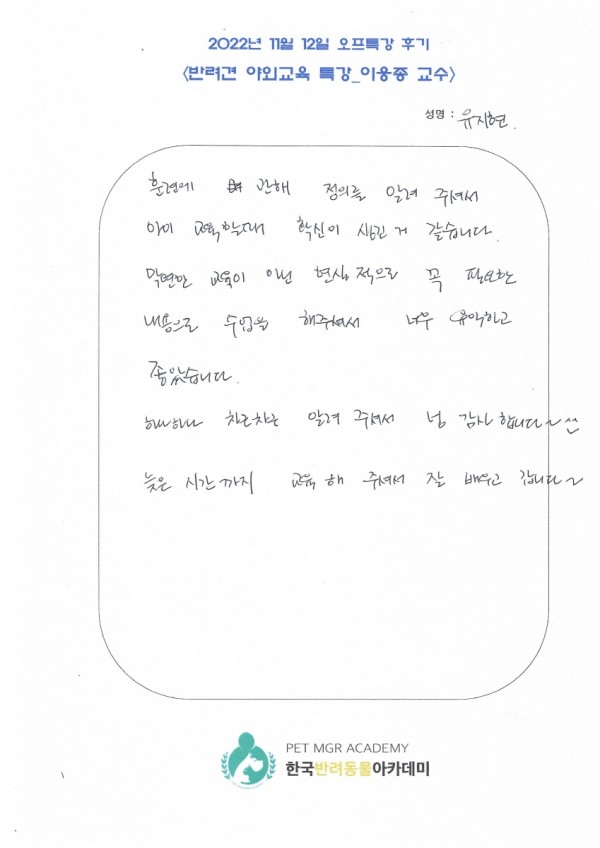 2022년 11월 12일 오프특강 후기
<반려견 야외교육 특강_이용종 교수>
성명 : 유지현.
훈련에 관해 정의를 알려 주셔서
아이 교육할때 확신이 생긴 거 같습니다.
막연한 교육이 아닌 현실적으로 꼭 필요한
내용으로 수업을 해주셔서 너무 유익하고
좋았습니다.
하나하나 차근차근 알려 주셔서 넘 감사합니다~ ^^
늦은 시간까지 교육해 주셔서 잘 배우고 갑니다~
PET MGR ACADEMY
한국반려동물아카데미